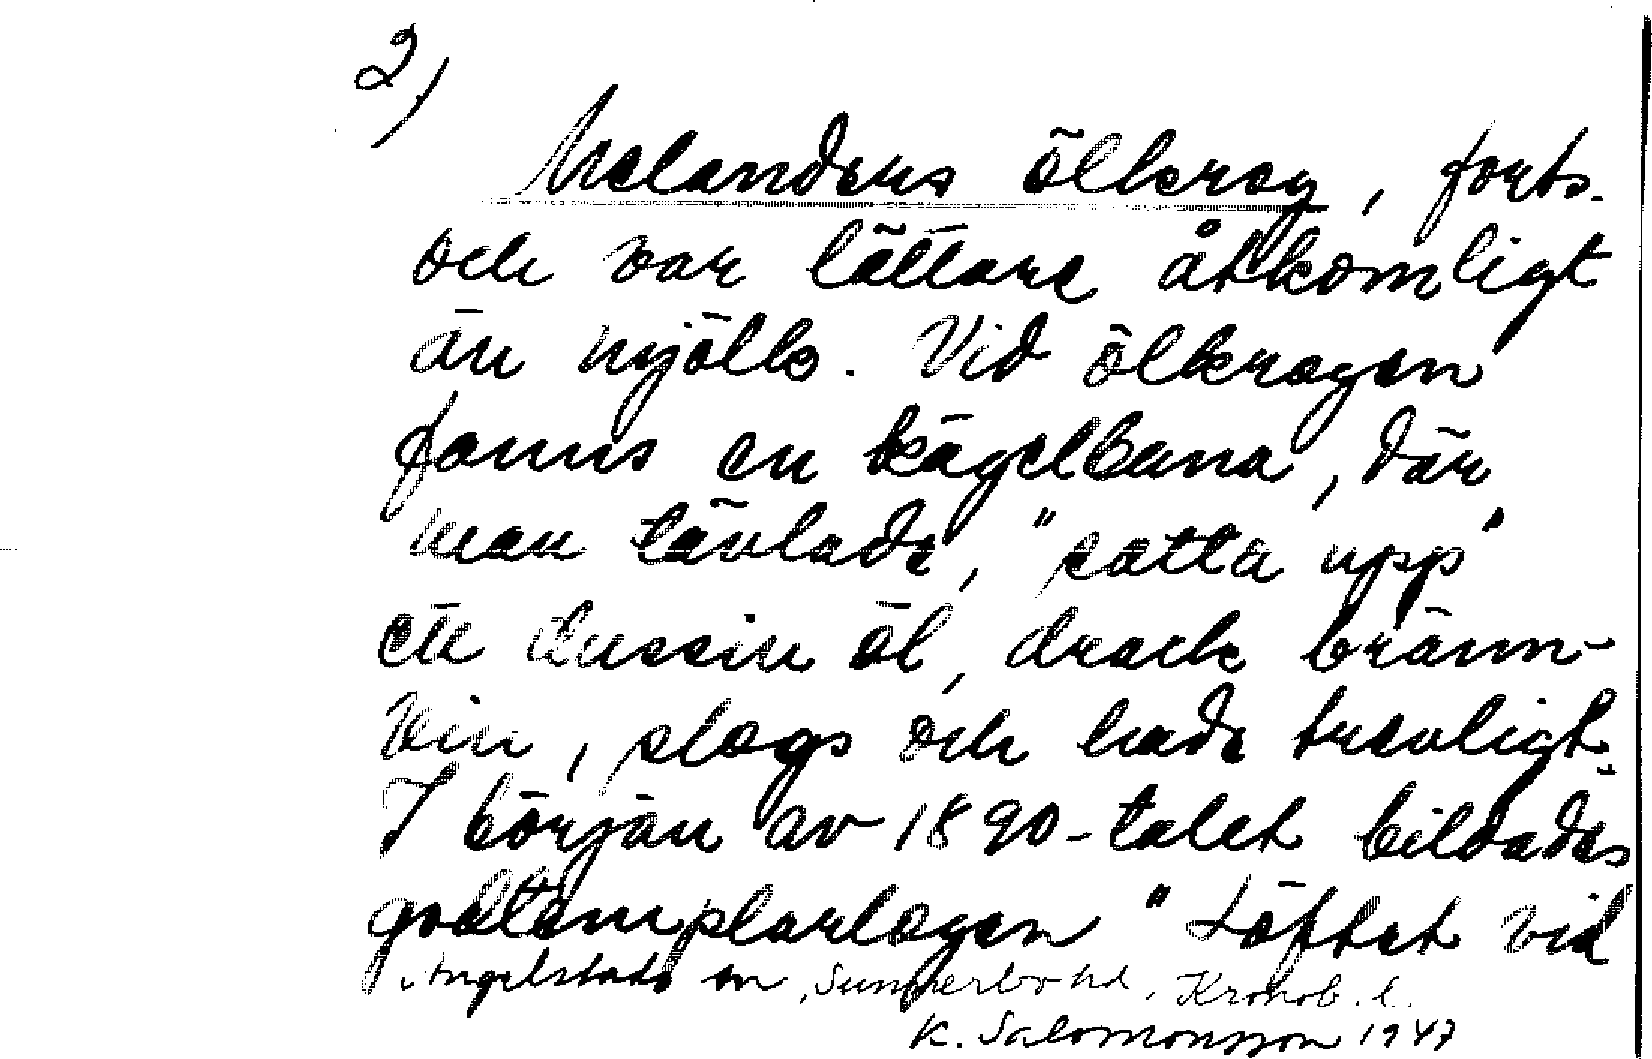 2)
Melanders ölkrog, forts.
och var lättare åtkomligt
än mjölk. Vid ölkrogen
fanns en kägelbana, där
man tävlade, "satta upp"
ett dussin öl, drack bränn-
vin, slogs och hade trevligt.
I början av 1890-talet bildades
godtemplarlogen "Löftet vid
Angelstads sn, Sunnerbo hd, Kronob. l.
K. Salomonsson 1947